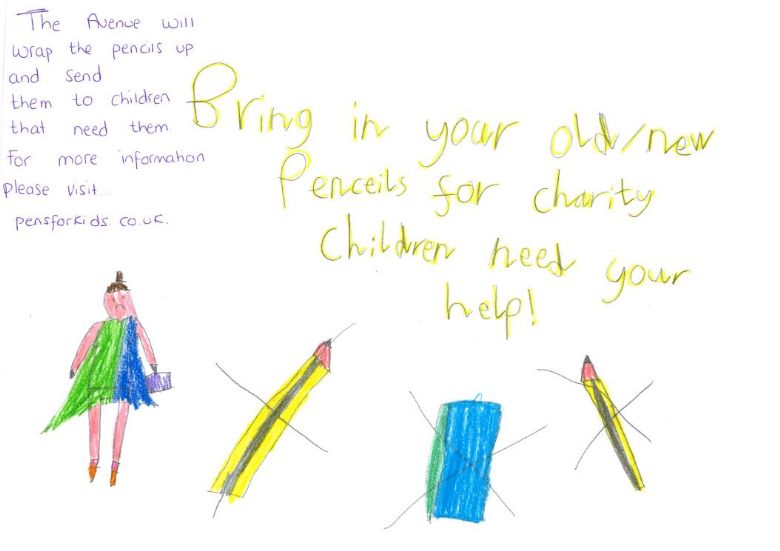 The Avenue will
wrap the pencils up
and send
them to children
that need them.
For more information
please visit...
pensforkids.co.uk.
Bring in your old/new
Penceils for charity
Children need your
help!